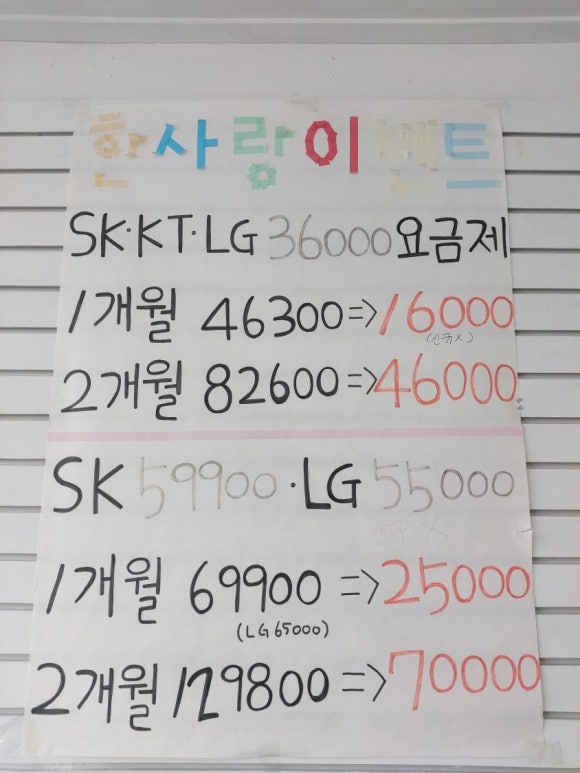 한사랑이벤트
SK·KT·LG 36000요금제
1개월 46300=>16000
(신규X)
2개월 82600=>46000
SK 59900·LG 55000
신규X
1개월 69900=>25000
(LG65000)
2개월 129800=>70000